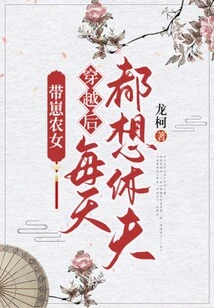 带崽农女
穿越后
每天
都想休夫
龙柯 著